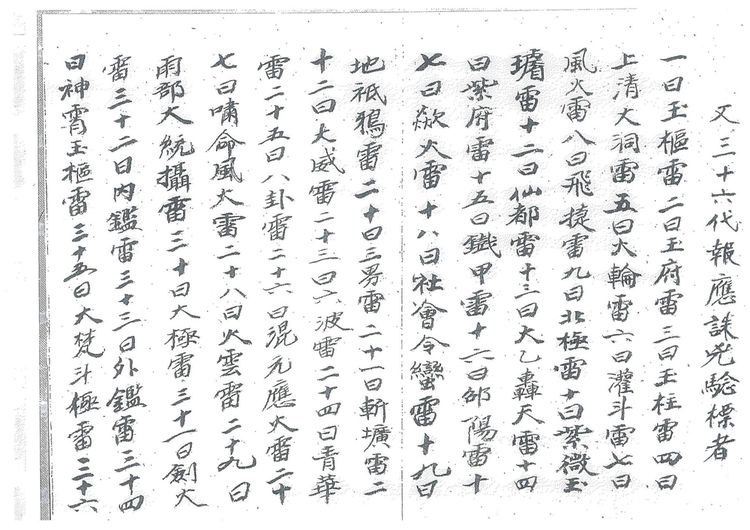 又三十六代報應誅兇驗標者
一曰玉樞雷二曰玉府雷三曰玉柱雷四曰
上清大洞雷五曰火輪雷六曰灌斗雷七曰
風火雷八曰飛捷雷九曰北極雷十曰紫微玉
璿雷十二曰仙都雷十三曰太乙轟天雷十四
曰紫府雷十五曰鐵甲雷十六曰邵陽雷十
七曰欻火雷十八曰社會令蠻雷十九曰
地祇鴉雷二十曰三界雷二十一曰斬壙雷二
十二曰大威雷二十三曰六波雷二十四曰青華
雷二十五曰八卦雷二十六曰混元應火雷二十
七曰嘯命風火雷二十八曰火雲雷二十九曰
雨部大統攝雷三十曰太極雷三十一曰劍火
雷三十二曰內鑑雷三十三曰外鑑雷三十四
曰神霄玉樞雷三十五曰大梵斗極雷三十六